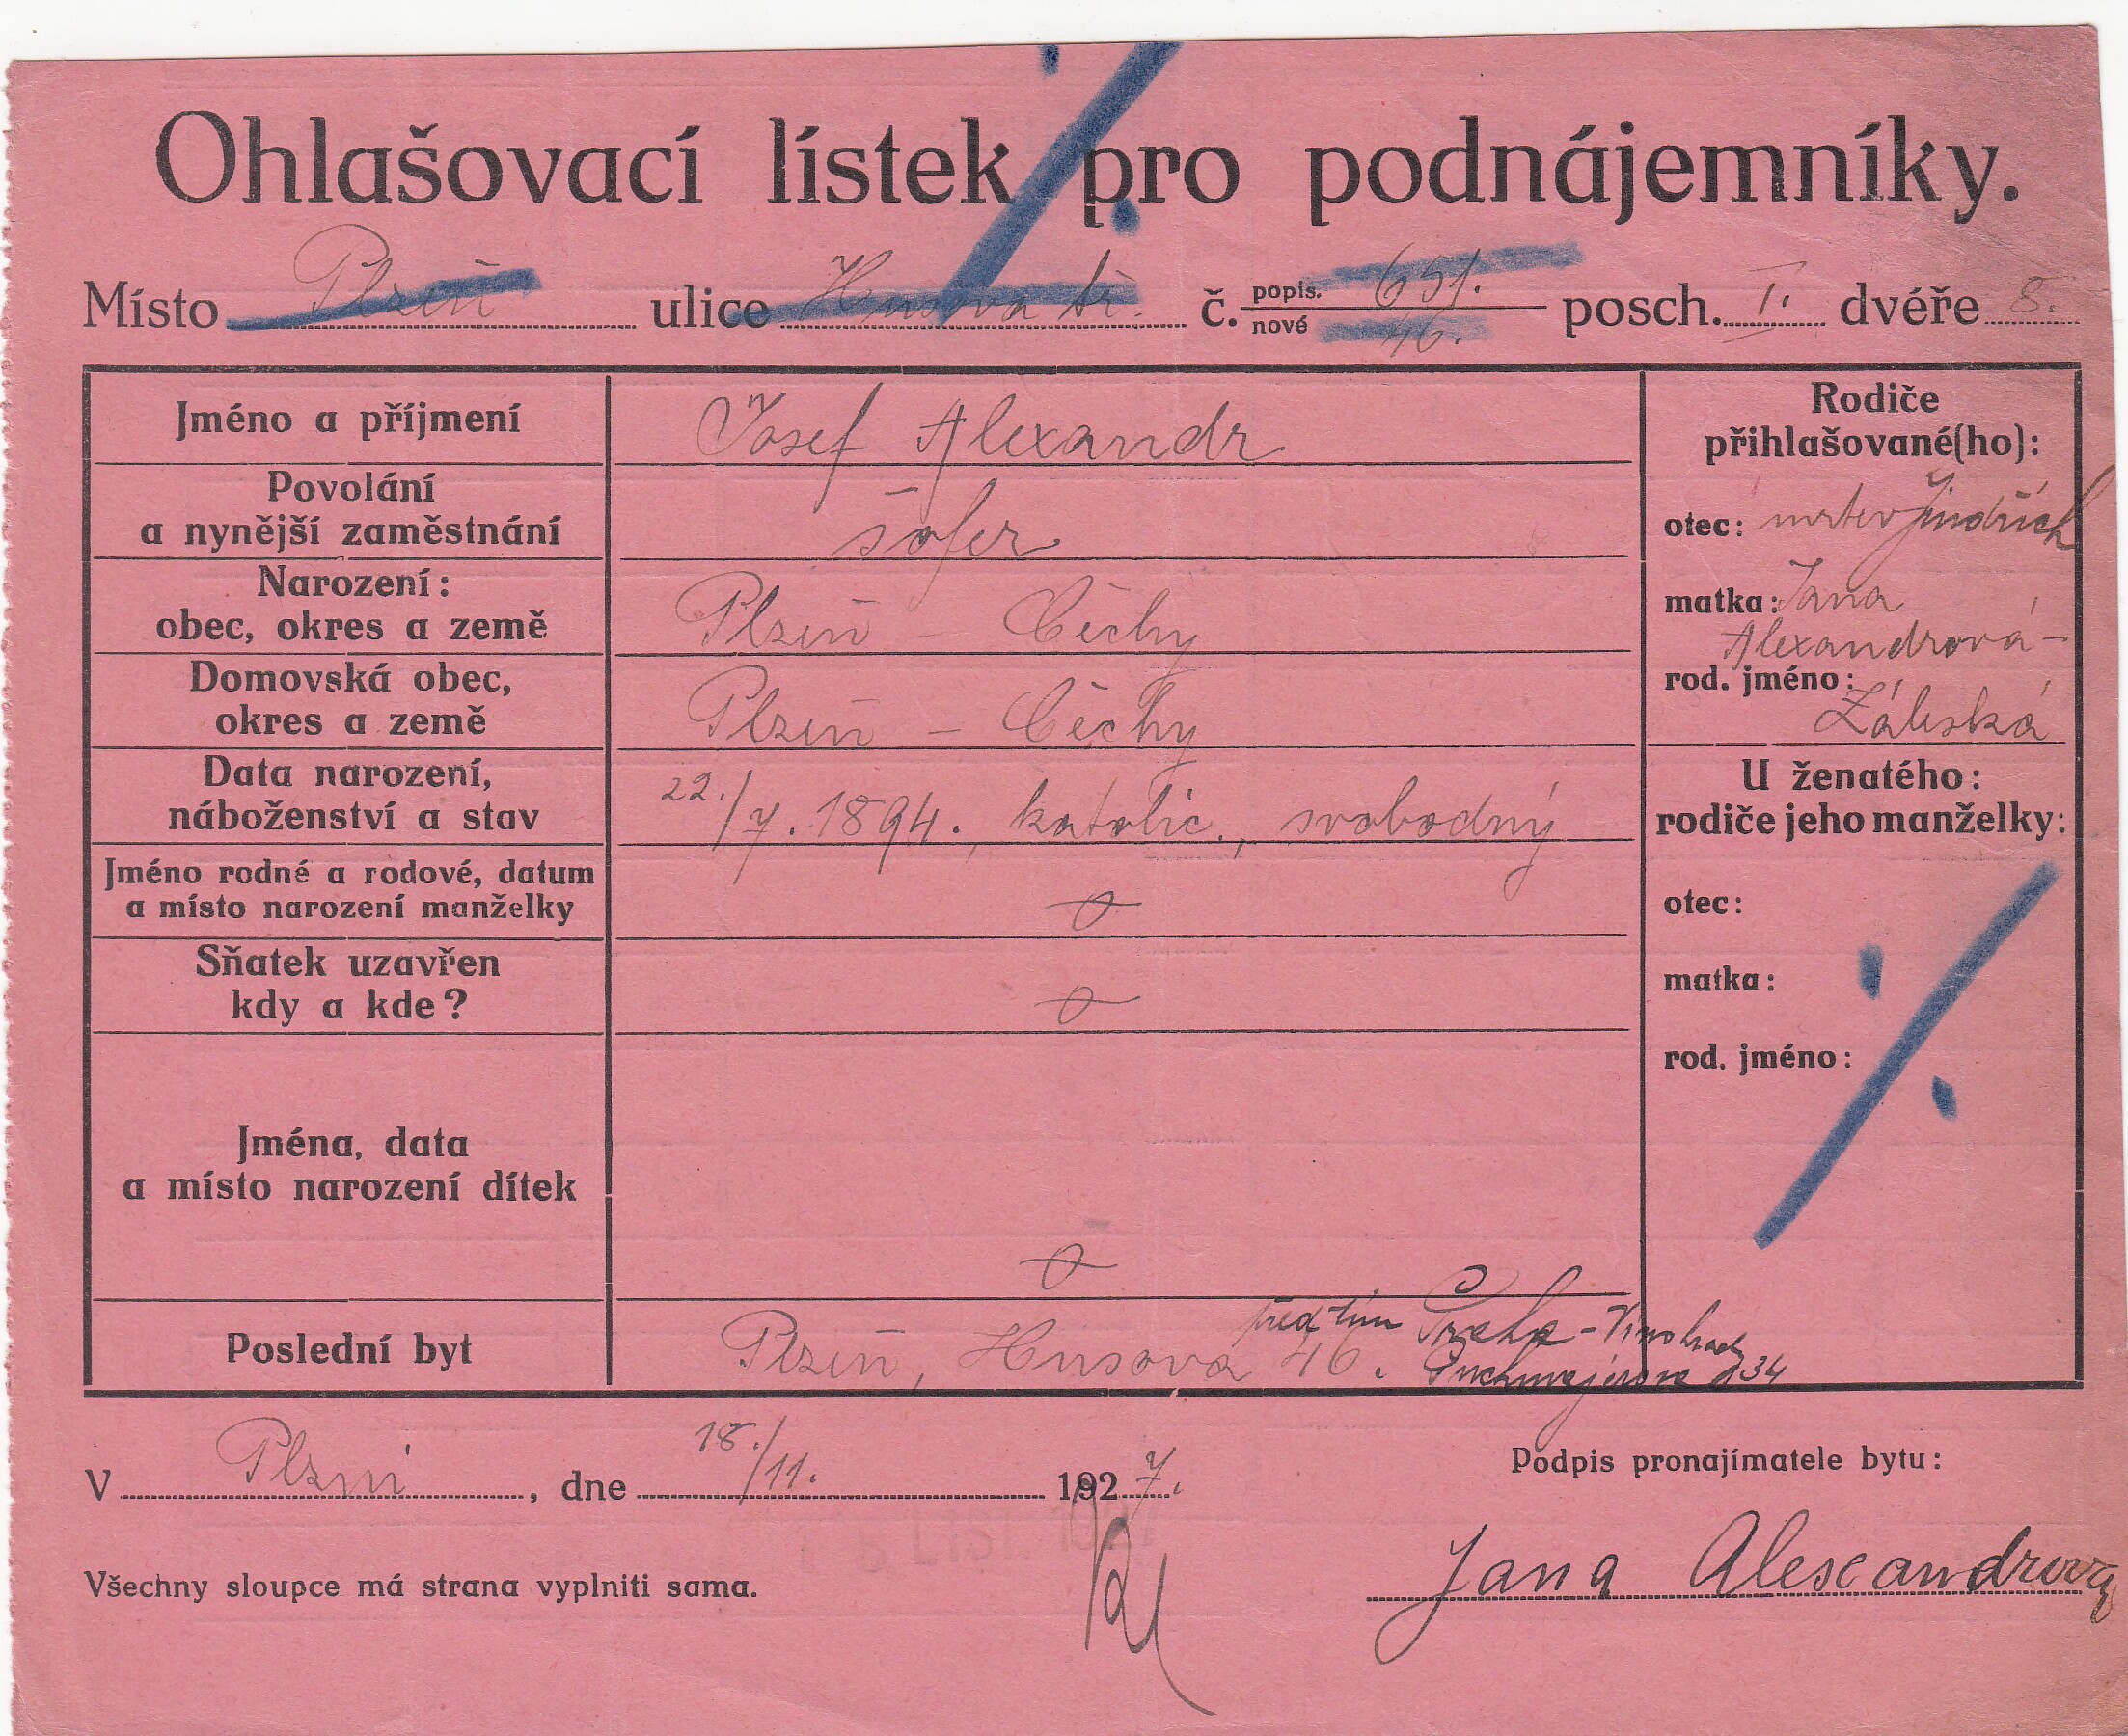 Ohlašovací lístek pro podnájemníky.
Místo Plzeň ulice Husova tř. č. popis. 651. nové 46. posch. I. dvéře 5.
Jméno a příjmení Josef Alexandr
Povolání
a nynější zaměstnání šofer
Narození:
obec, okres a země Plzeň – Čechy
Domovská obec,
okres a země Plzeň – Čechy
Data narození,
náboženství a stav 22./7. 1894., katolic., svobodný
Jméno rodné a rodové, datum
a místo narození manželky
Sňatek uzavřen
kdy a kde?
Jména, data
a místo narození dítek
Poslední byt Plzeň, Husova 46. předtím Praha - Vinohrady
Puchmajerova 34
Rodiče
přihlašované(ho):
otec: mrtev Jindřich
matka: Jana
Alexandrová -
rod. jméno:
Záleská
U ženatého:
rodiče jeho manželky:
otec:
matka:
rod. jméno:
V Plzni, dne 18./11. 1927.
Podpis pronajímatele bytu:
Jana Alexandrova
Všechny sloupce má strana vyplniti sama.